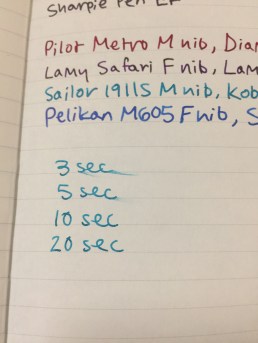 Sharpie Pen EF
Pilot Metro M nib,
Lamy Safari F nib,
Sailor 1911S M nib,
Pelikan M605 F nib,
3 sec
5 sec
10 sec
20 sec